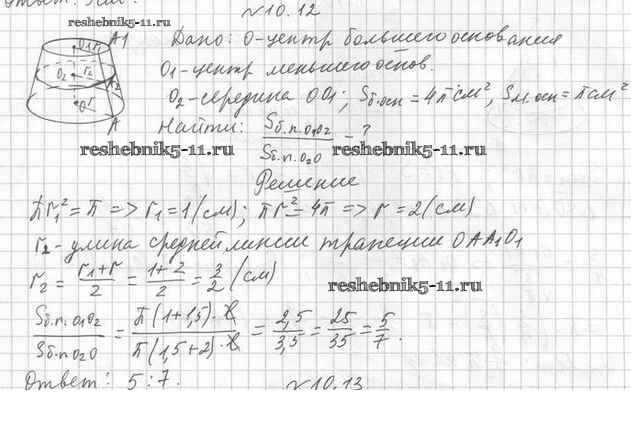 Ответ: 3см.
№10.12
reshebnik5-11.ru
Дано: O-центр большего основания
O₁-центр меньшего основ.
O₂-середина OO₁; Sб.осн = 4π см², Sм.осн = π см²
Найти: Sб.п.O₁O₂ / Sб.п.O₂O - ?
A1
O₁ r₁
O₂ r₂ A₂
O r
A
reshebnik5-11.ru
reshebnik5-11.ru
Решение
πr₁² = π => r₁ = 1 (см); πr² = 4π => r = 2 (см)
r₂ - длина средней линии трапеции OAA₁O₁
r₂ = (r₁ + r)/2 = (1 + 2)/2 = 3/2 (см)
reshebnik5-11.ru
Sб.п.O₁O₂ / Sб.п O₂O = π(1+1,5)·ℓ / π(1,5+2)·ℓ = 2,5/3,5 = 25/35 = 5/7.
Ответ: 5:7.
№10.13